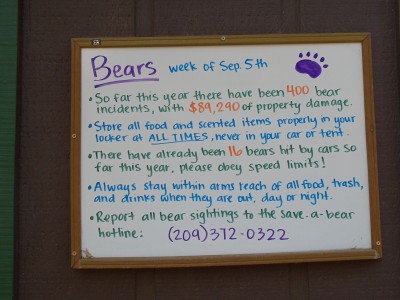 Bears week of Sep. 5th
• So far this year there have been 400 bear
incidents, with $89,290 of property damage.
• Store all food and scented items properly in your
locker at ALL TIMES, never in your car or tent.
• There have already been 16 bears hit by cars so
far this year, please obey speed limits!
• Always stay within arms reach of all food, trash,
and drinks when they are out, day or night.
• Report all bear sightings to the save-a-bear
hotline: (209)372-0322